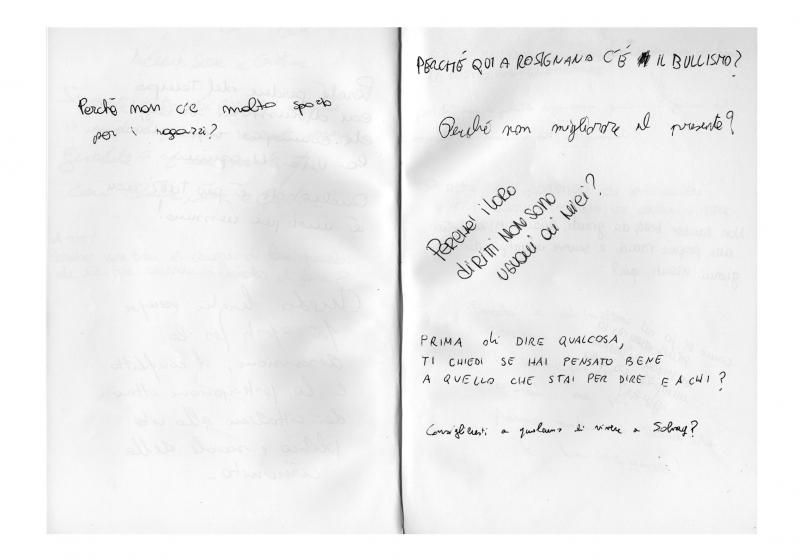 Perché non c'è molto spazio
per i ragazzi?
PERCHÉ QUI A ROSIGNANO C'È IL BULLISMO?
Perché non migliorare il presente?
PERCHE' I LORO
DIRITTI NON SONO
UGUALI AI MIEI?
PRIMA di DIRE QUALCOSA,
TI CHIEDI SE HAI PENSATO BENE
A QUELLO CHE STAI PER DIRE E A CHI?
Consiglieresti a qualcuno di vivere a Solvay?